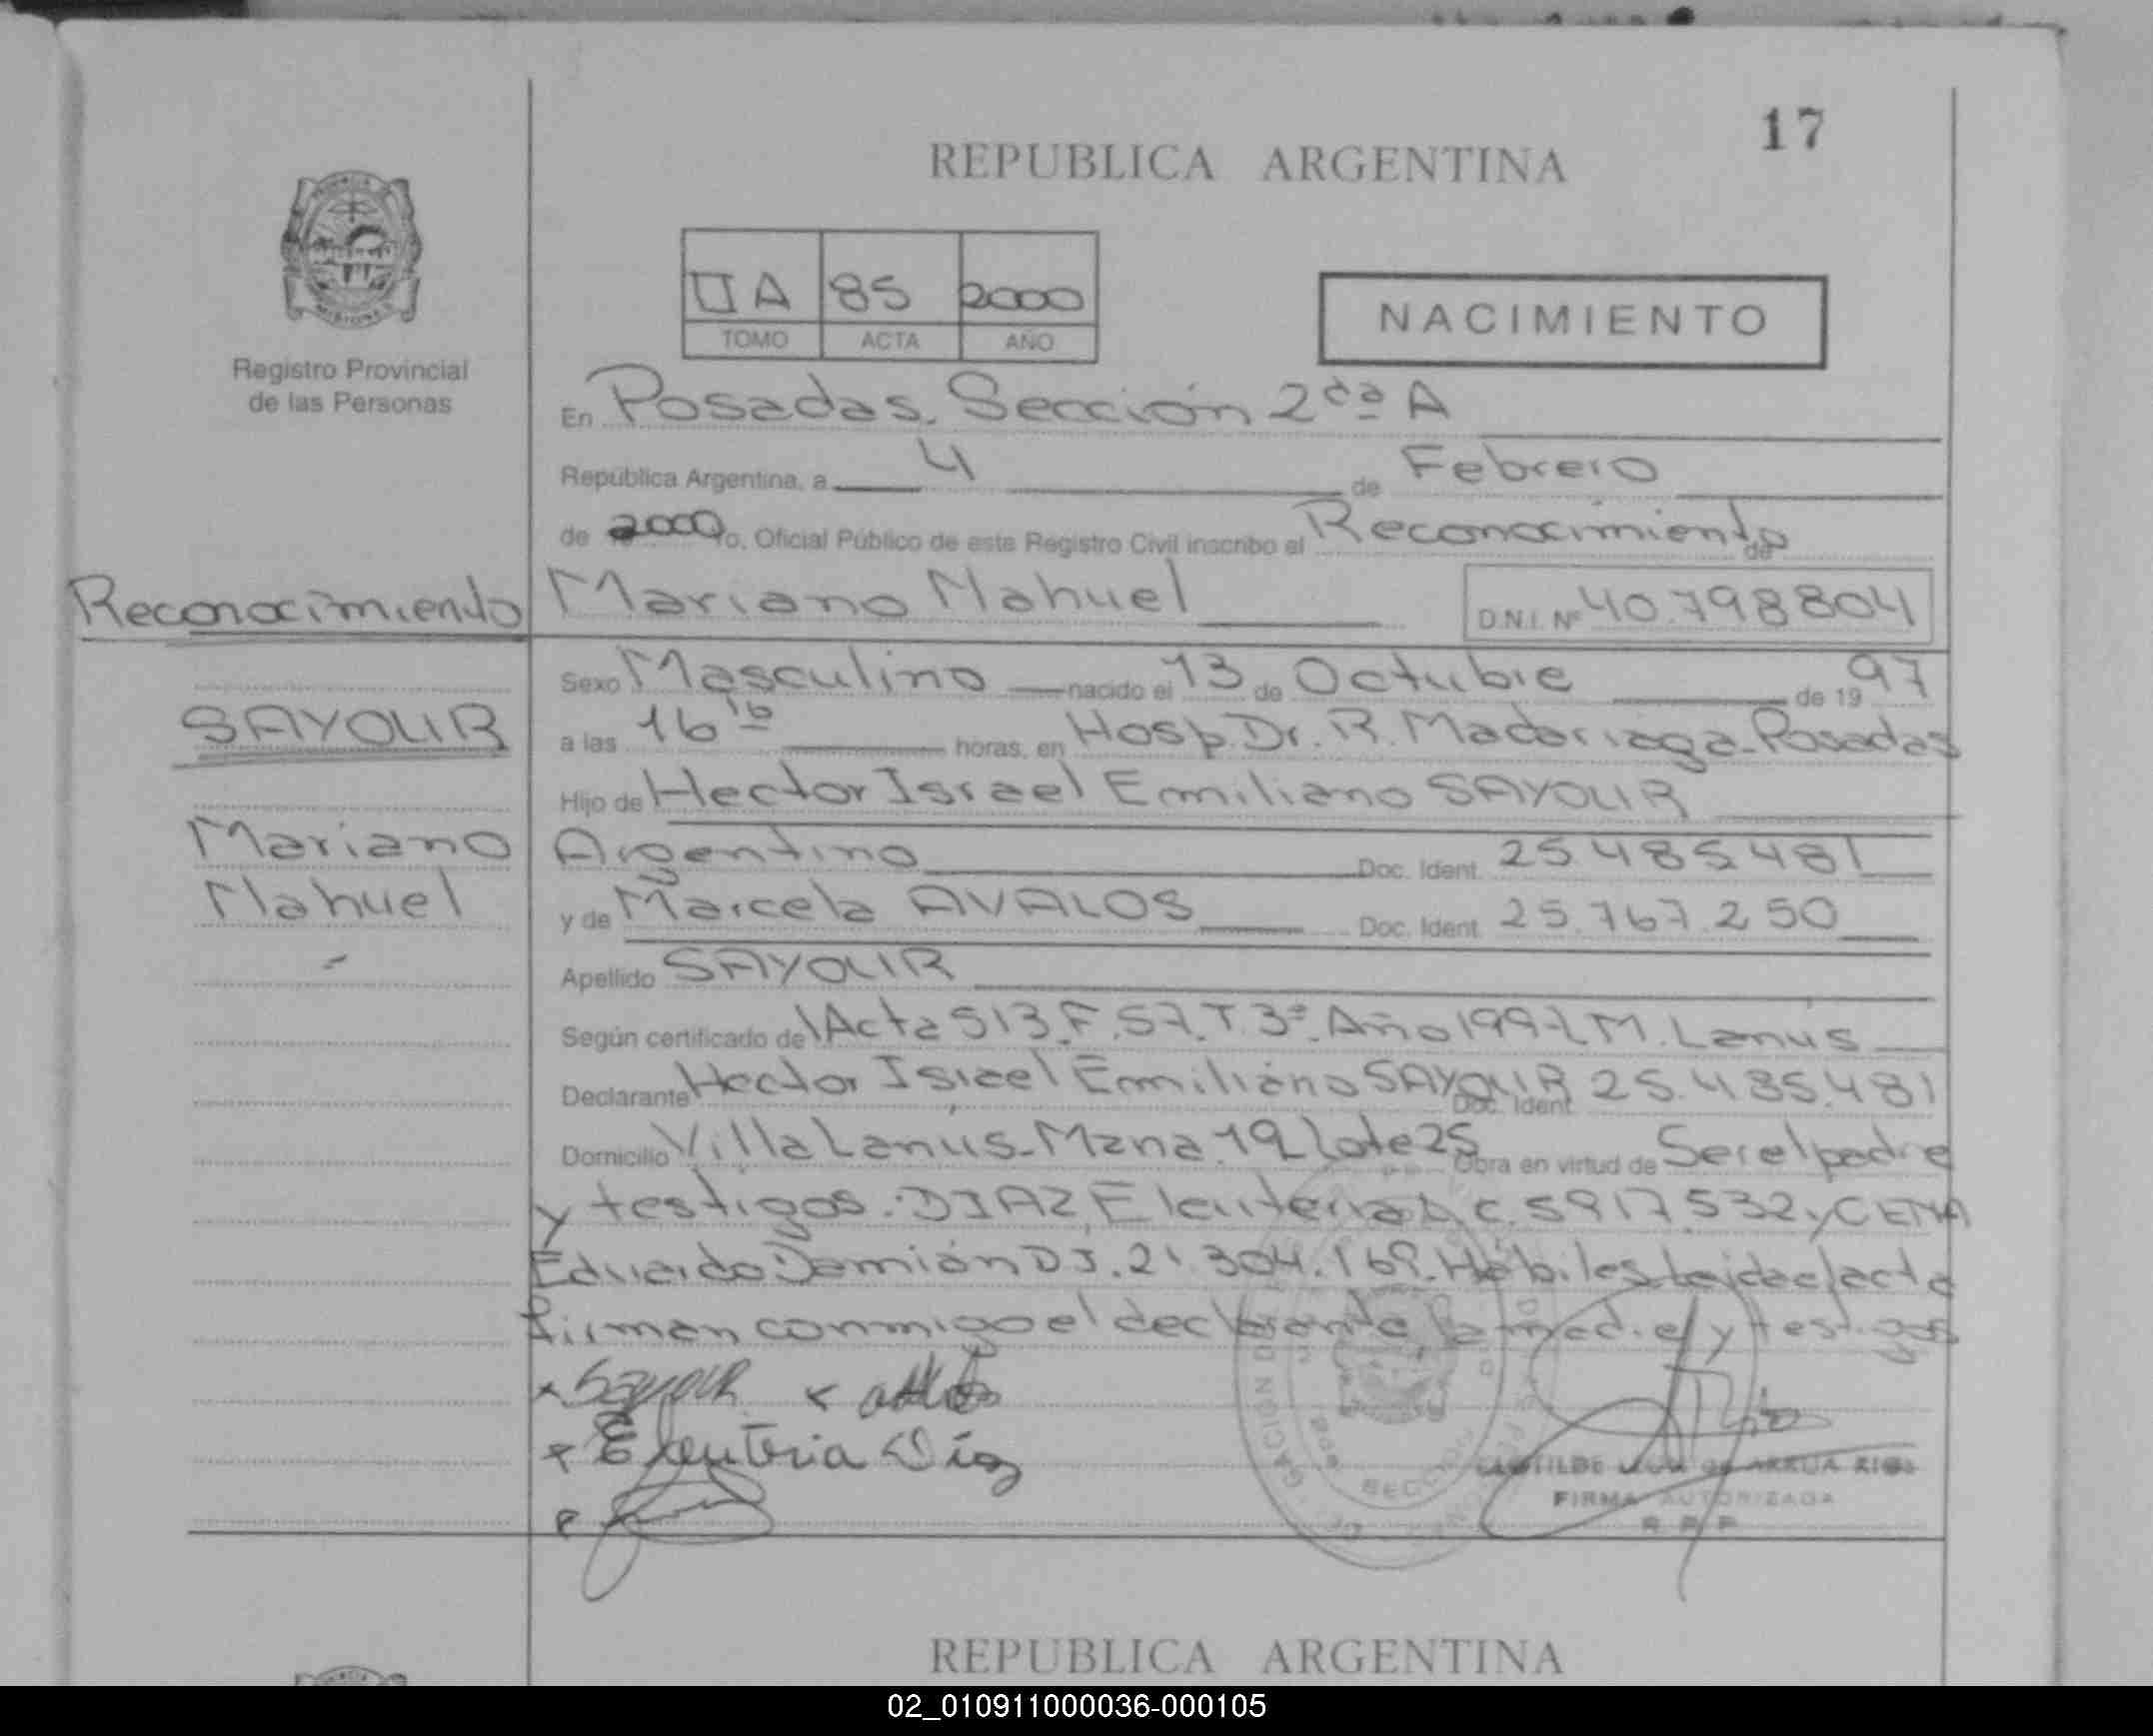 17
REPUBLICA ARGENTINA
Registro Provincial
de las Personas
II A 85 2000
TOMO ACTA AÑO
NACIMIENTO
En Posadas. Sección 2da A
República Argentina, a 4 de Febrero
de 2000 Yo, Oficial Público de este Registro Civil inscribo el Reconocimiento de
Reconocimiento
Mariano Nahuel D.N.I. Nº 40.798804
Sexo Masculino nacido el 13 de Octubre de 1997
SAYOUR
a las 16 16 horas, en Hosp. Dr. R. Madariaga-Posadas
Hijo de Hector Israel Emiliano SAYOUR
Mariano
Argentino Doc. Ident. 25485481
Nahuel
y de Marcela AVALOS Doc. Ident. 25.767.250
Apellido SAYOUR
Según certificado de Acta 513.F.57.T.3º.Año 1997 M. Lanús
Declarante Hector Israel Emiliano SAYOUR Doc. Ident. 25.485.481
Domicilio Villa Lanús-Mzna.19 Lote 25 Obra en virtud de Ser el padre
y testigos. DIAZ, Eleuteria L.C. 5917.532 y
Eduardo Damián DJ. 21.304.169. Hábiles Leida el acta
firman conmigo el declarante la madre y testigos
Sayour
Eleuteria Díaz
CLOTILDE ARRUA RIOS
FIRMA AUTORIZADA
R.P.P.
REPUBLICA ARGENTINA
02_010911000036-000105